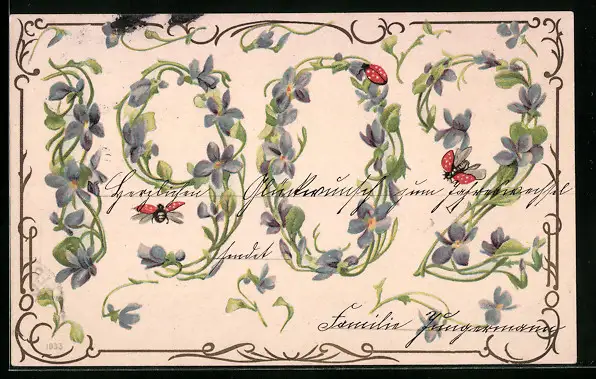 1902
Herzlichen Glückwunsch zum Jahreswechsel
sendet
Familie Jungermann
1933